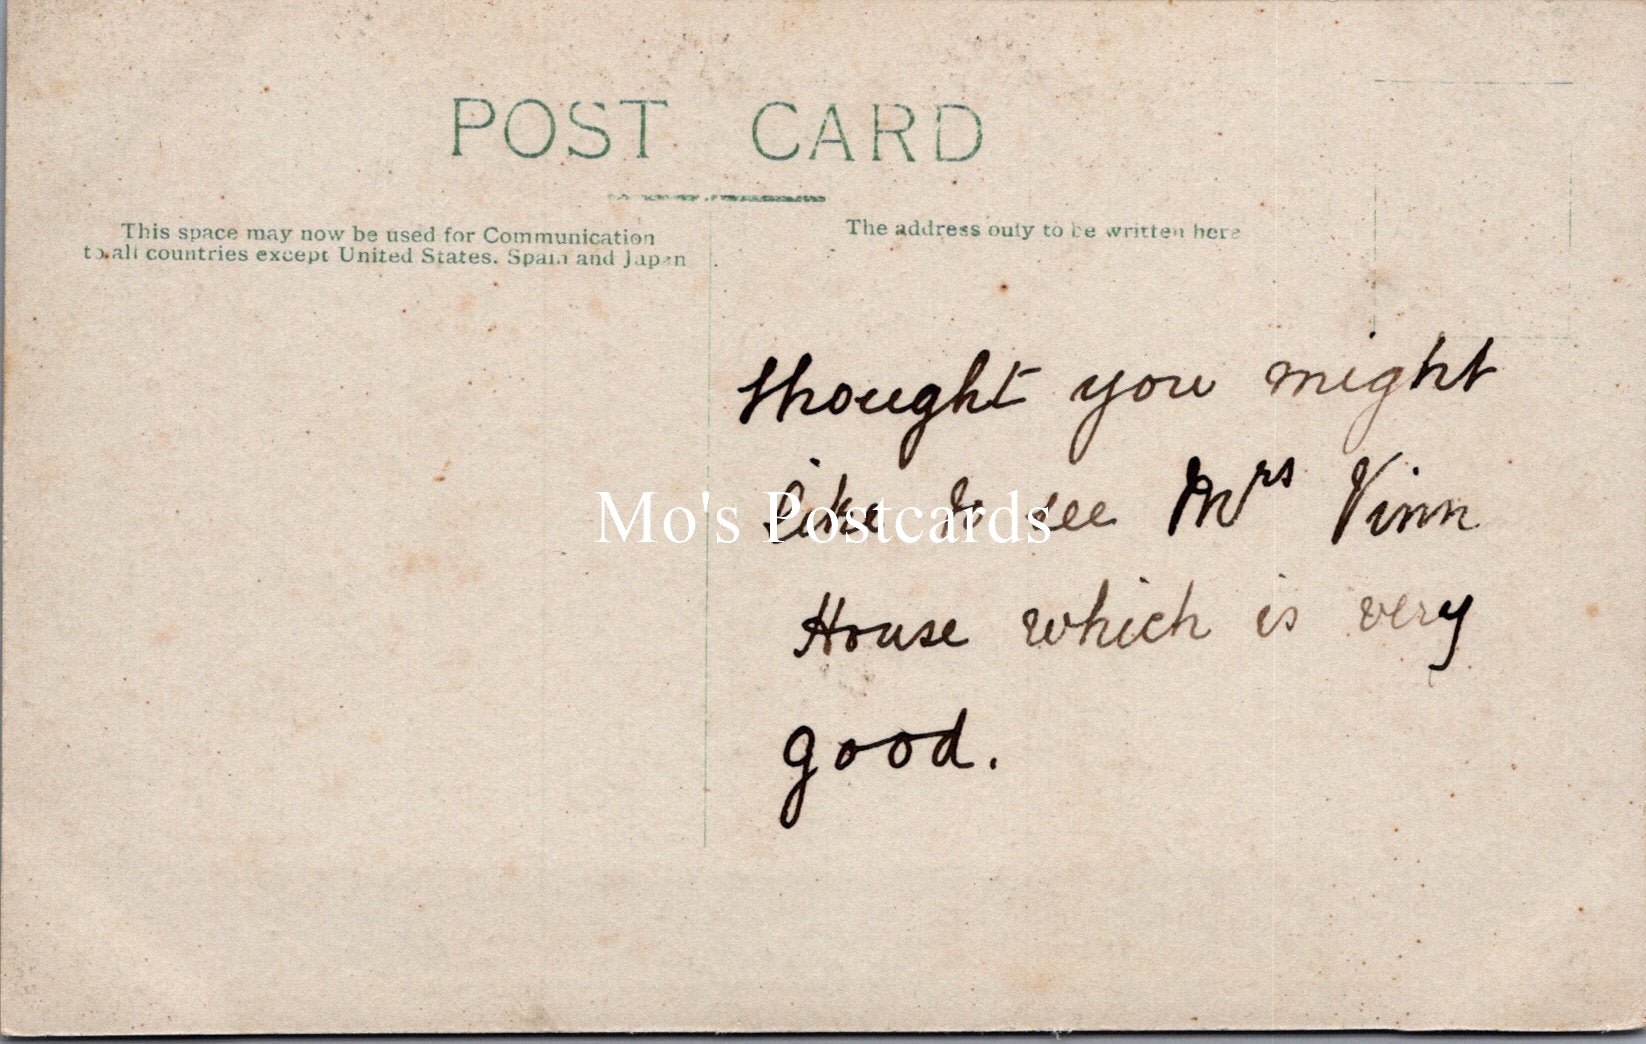 POST CARD
This space may now be used for Communication
to all countries except United States. Spain and Japan
The address only to be written here
thought you might
like to see Mrs Vinn
House which is very
good.
Mo's Postcards